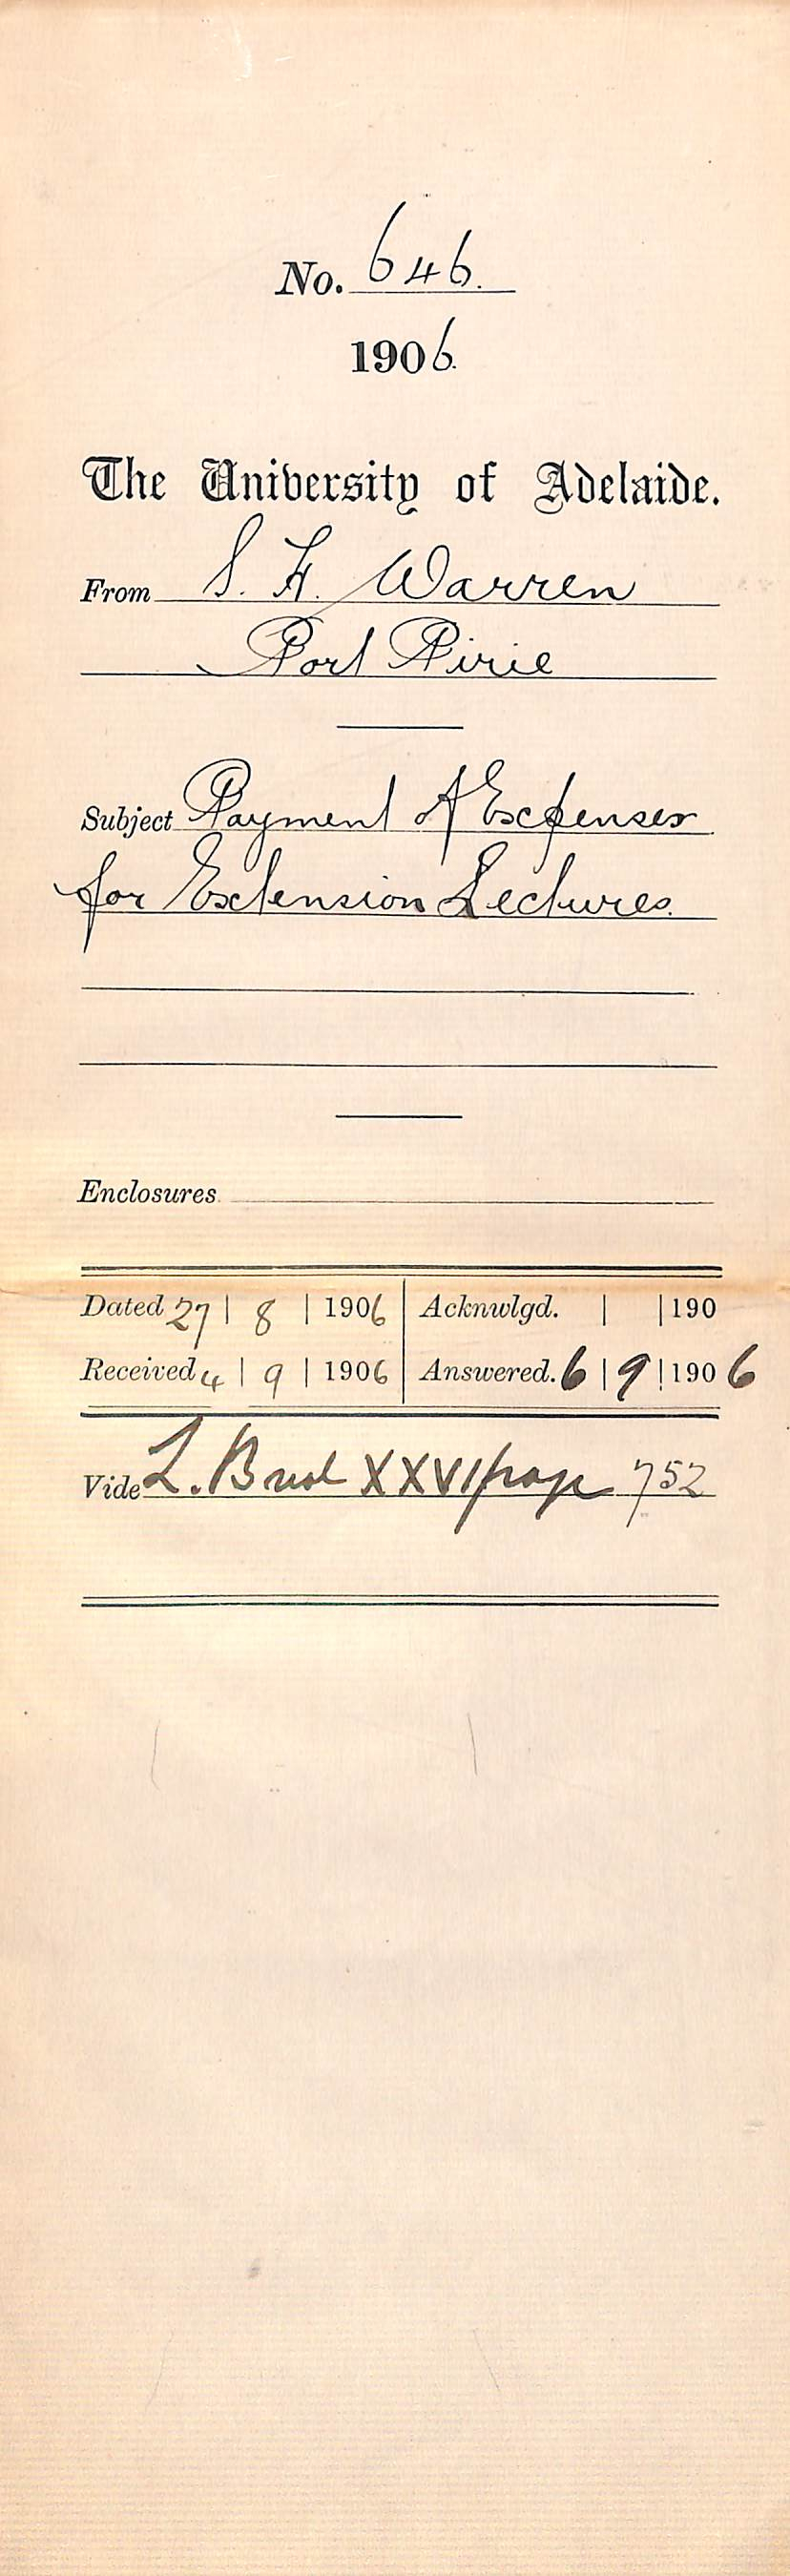 No. 646.
1906.
The University of Adelaide.
From S. H. Warren
Port Pirie
Subject Payment of Expenses
for Extension Lectures.
Enclosures
Dated 27 | 8 | 1906 Acknwlgd. | |190
Received 4 | 9 | 1906 Answered. 6 | 9 | 1906
Vide L. XXVI page 752